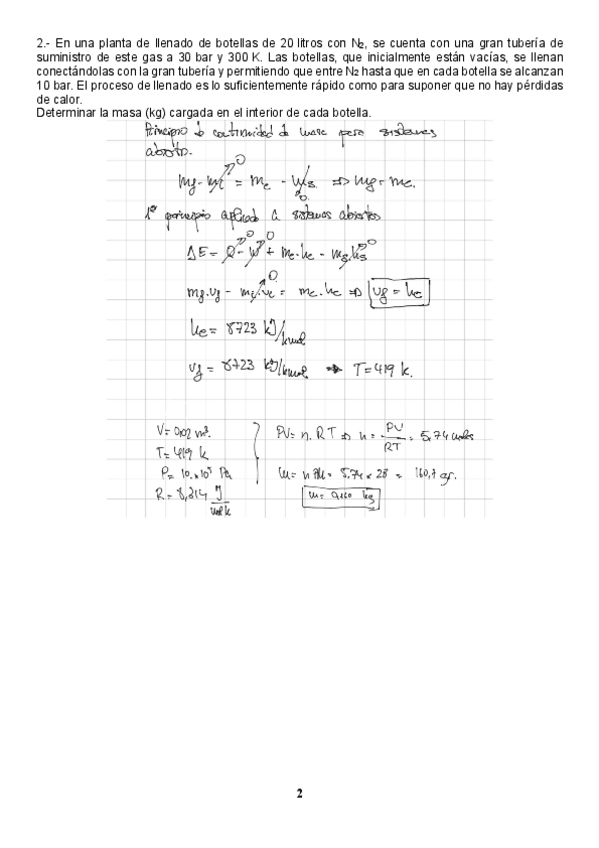 2.- En una planta de llenado de botellas de 20 litros con N₂, se cuenta con una gran tubería de
suministro de este gas a 30 bar y 300 K. Las botellas, que inicialmente están vacías, se llenan
conectándolas con la gran tubería y permitiendo que entre N₂ hasta que en cada botella se alcanzan
10 bar. El proceso de llenado es lo suficientemente rápido como para suponer que no hay pérdidas
de calor.
Determinar la masa (kg) cargada en el interior de cada botella.
Principio de continuidad de masa para sistemas
abierto.
mf - mi = me - ms ⇒ mf = me.
0 0
1er principio aplicado a sistemas abiertos
0 0 0
ΔE = Q - W + me·he - ms·hs
0
mf·uf - mi·ui = me·he ⇒ uf = he
he = 8723 kJ/kmol
uf = 8723 kJ/kmol → T = 419 K.
V = 0,02 m³.
T = 419 K
P = 10·10⁵ Pa
R = 8,314 J/mol K
PV = n·RT ⇒ n = PV/RT = 5,74 moles
m = n·PM = 5.74 × 28 = 160,7 gr.
m = 0,160 kg
2